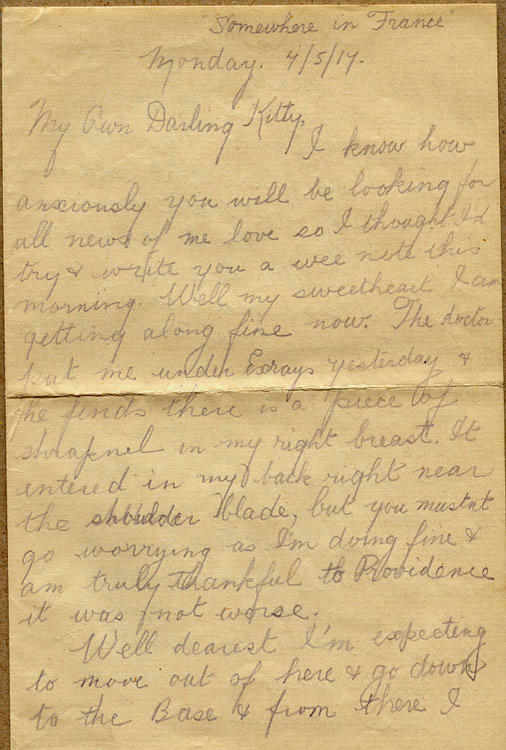 "Somewhere in France"
Monday. 4/5/17.
My Own Darling Kitty,
I know how
anxiously you will be looking for
all news of me love so I thought I'd
try & write you a wee note this
morning. Well my sweetheart I am
getting along fine now. The doctor
put me under Exrays yesterday &
he finds there is a piece of
shrapnel in my right breast. It
entered in my back right near
the shoulder blade, but you mustnt
go worrying as I'm doing fine &
am truly thankful to Providence
it was not worse.
Well dearest I'm expecting
to move out of here & go down
to the Base & from there I